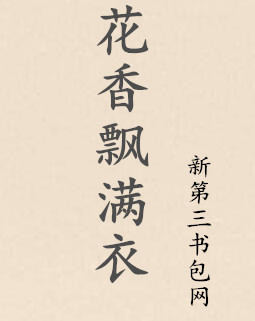 花香飘满衣
新第三书包网